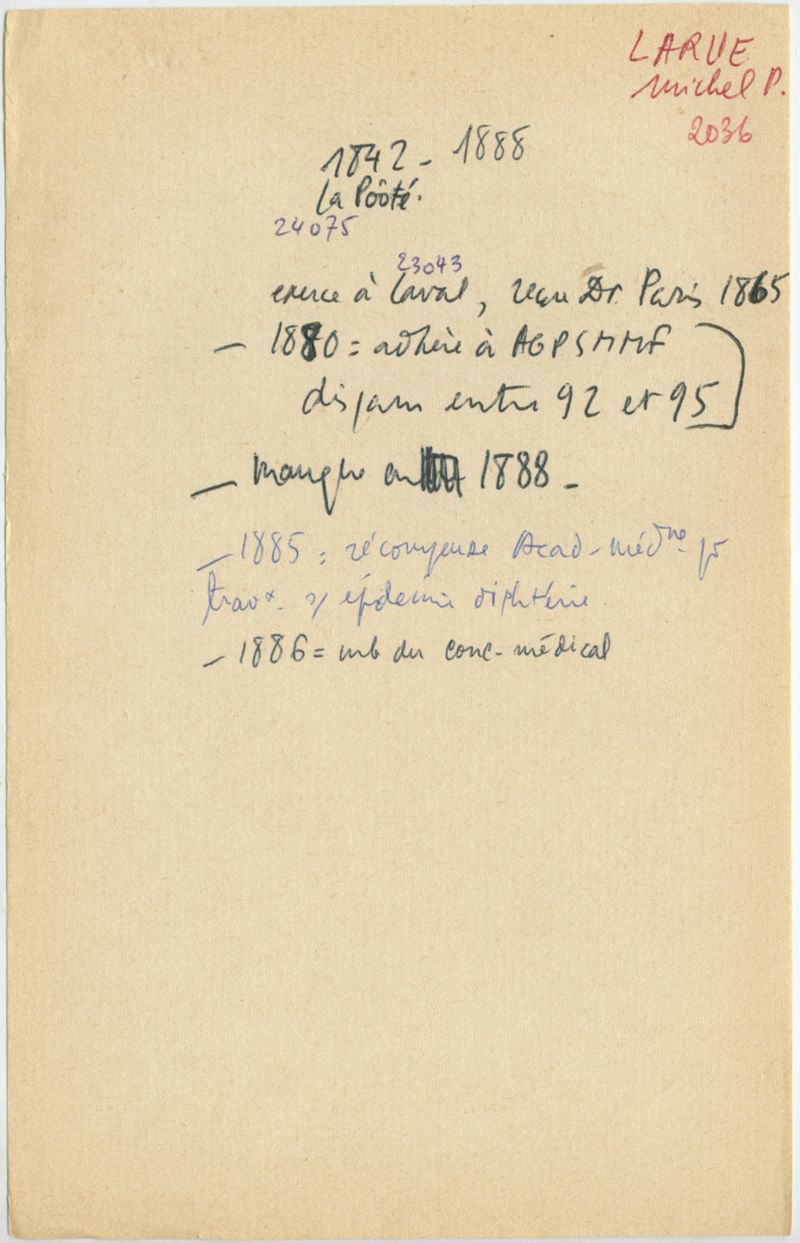 LARUE
Michel P.
2036
1842 - 1888
La Pôoté.
24075
23043
exerce à Laval, reçu Dr. Paris 1865
- 1880 = adhère à AGPSMMF
disparu entre 92 et 95
- manque en 1888 -
- 1885 : récompense Acad-médne pr
travx. s/ épidémie diphtérie
- 1886 = mb du conc-médical